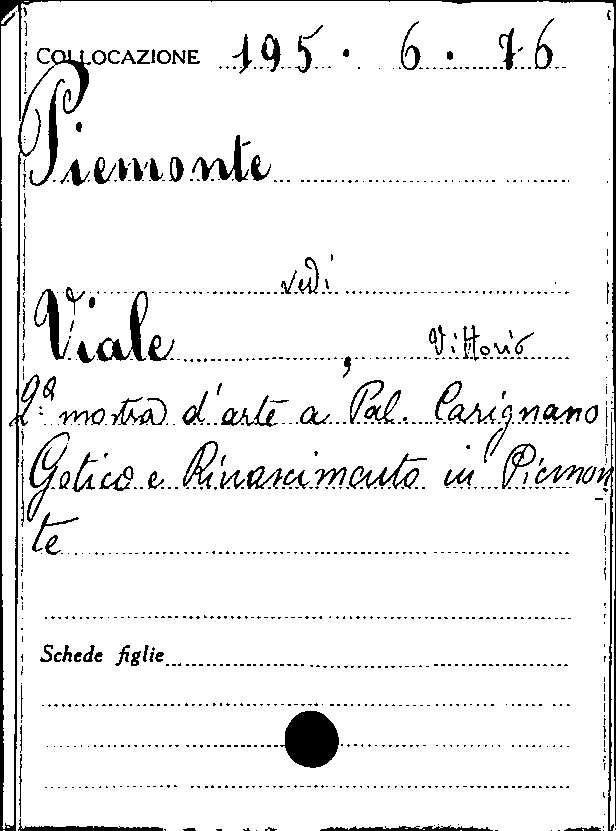 COLLOCAZIONE 195. 6. 76
Piemonte
vedi
Viale, Vittorio
2ª mostra d'arte a Pal. Carignano
Gotico e Rinascimento in Piemon
te
Schede figlie